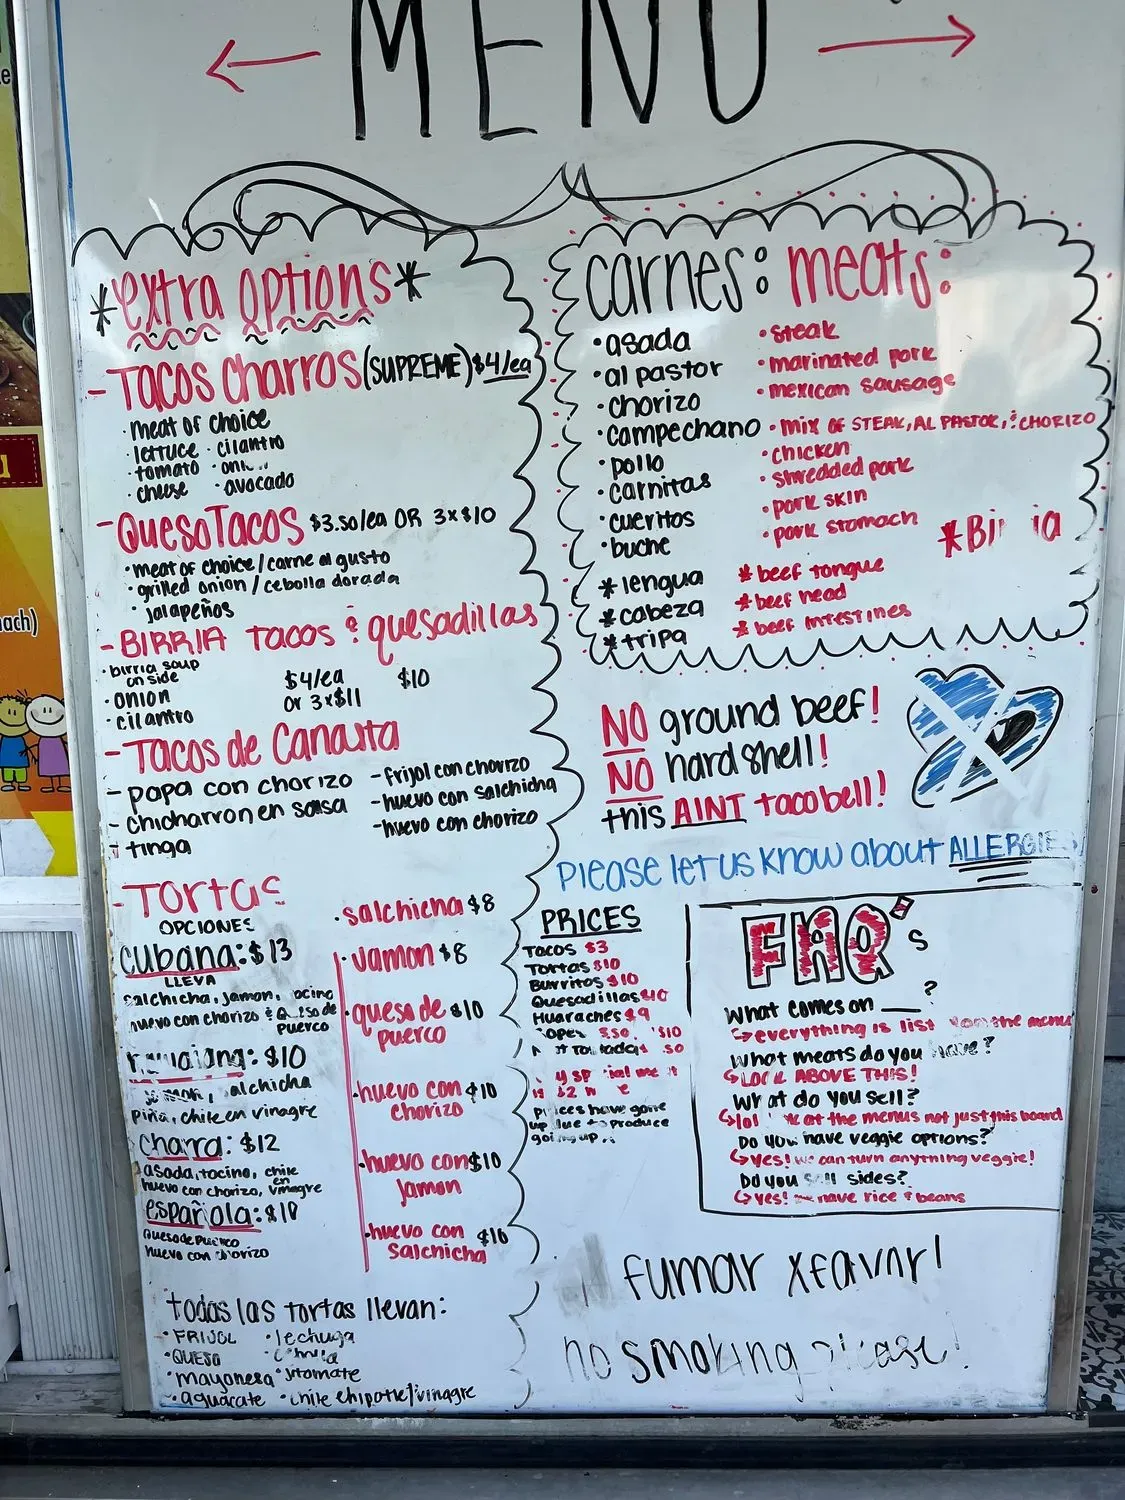 MENU
*extra options*
- Tacos Charros (SUPREME) $4/ea
· meat of choice
· lettuce · cilantro
· tomato
· cheese · avocado
- Queso Tacos $3.50/ea OR 3x$10
· meat of choice / carne al gusto
· grilled onion / cebolla dorada
· jalapeños
- BIRRIA Tacos & quesadillas
· birria soup on side
· onion
· cilantro
$4/ea $10
or 3x$11
- Tacos de Canasta
- papa con chorizo
- chicharron en salsa
- tinga
- frijol con chorizo
- huevo con salchicha
- huevo con chorizo
- Tortas
OPCIONES
cubana: $13
LLEVA
salchicha, jamon,
huevo con chorizo & Queso de PUERCO
$10
piña, chile en vinagre
charra: $12
asada, tocino, chile en vinagre
huevo con chorizo,
española:
Queso de Puerco
huevo con chorizo
· salchicha $8
· Jamon $8
· queso de puerco $10
· huevo con chorizo $10
· huevo con Jamon $10
· huevo con Salchicha
todas las tortas llevan:
· FRIJOL · lechuga
· QUESO
· mayonesa · jitomate
· aguacate · chile chipotle/vinagre
carnes: meats:
· asada · steak
· al pastor · marinated pork
· chorizo · mexican sausage
· campechano · mix OF STEAK, AL PASTOR, & CHORIZO
· pollo · chicken
· carnitas · shredded pork
· cueritos · pork skin
· buche · pork stomach
* lengua * beef tongue
* cabeza * beef head
* tripa * beef intestines
NO ground beef!
NO hard shell!
this AINT taco bell!
Please let us know about ALLERGIES
PRICES
Tacos $3
Tortas $10
Burritos $10
Quesadillas $10
Huaraches $9
$10
Prices have gone
up due to produce
going up
FAQ's
What comes on ___?
everything is list on the menu
What meats do you have?
LOOK ABOVE THIS!
What do you sell?
lol at the menus not just this board
Do you have veggie options?
yes! we can turn anything veggie!
Do you sell sides?
yes! we have rice & beans
fumar x favor!
no smoking please!